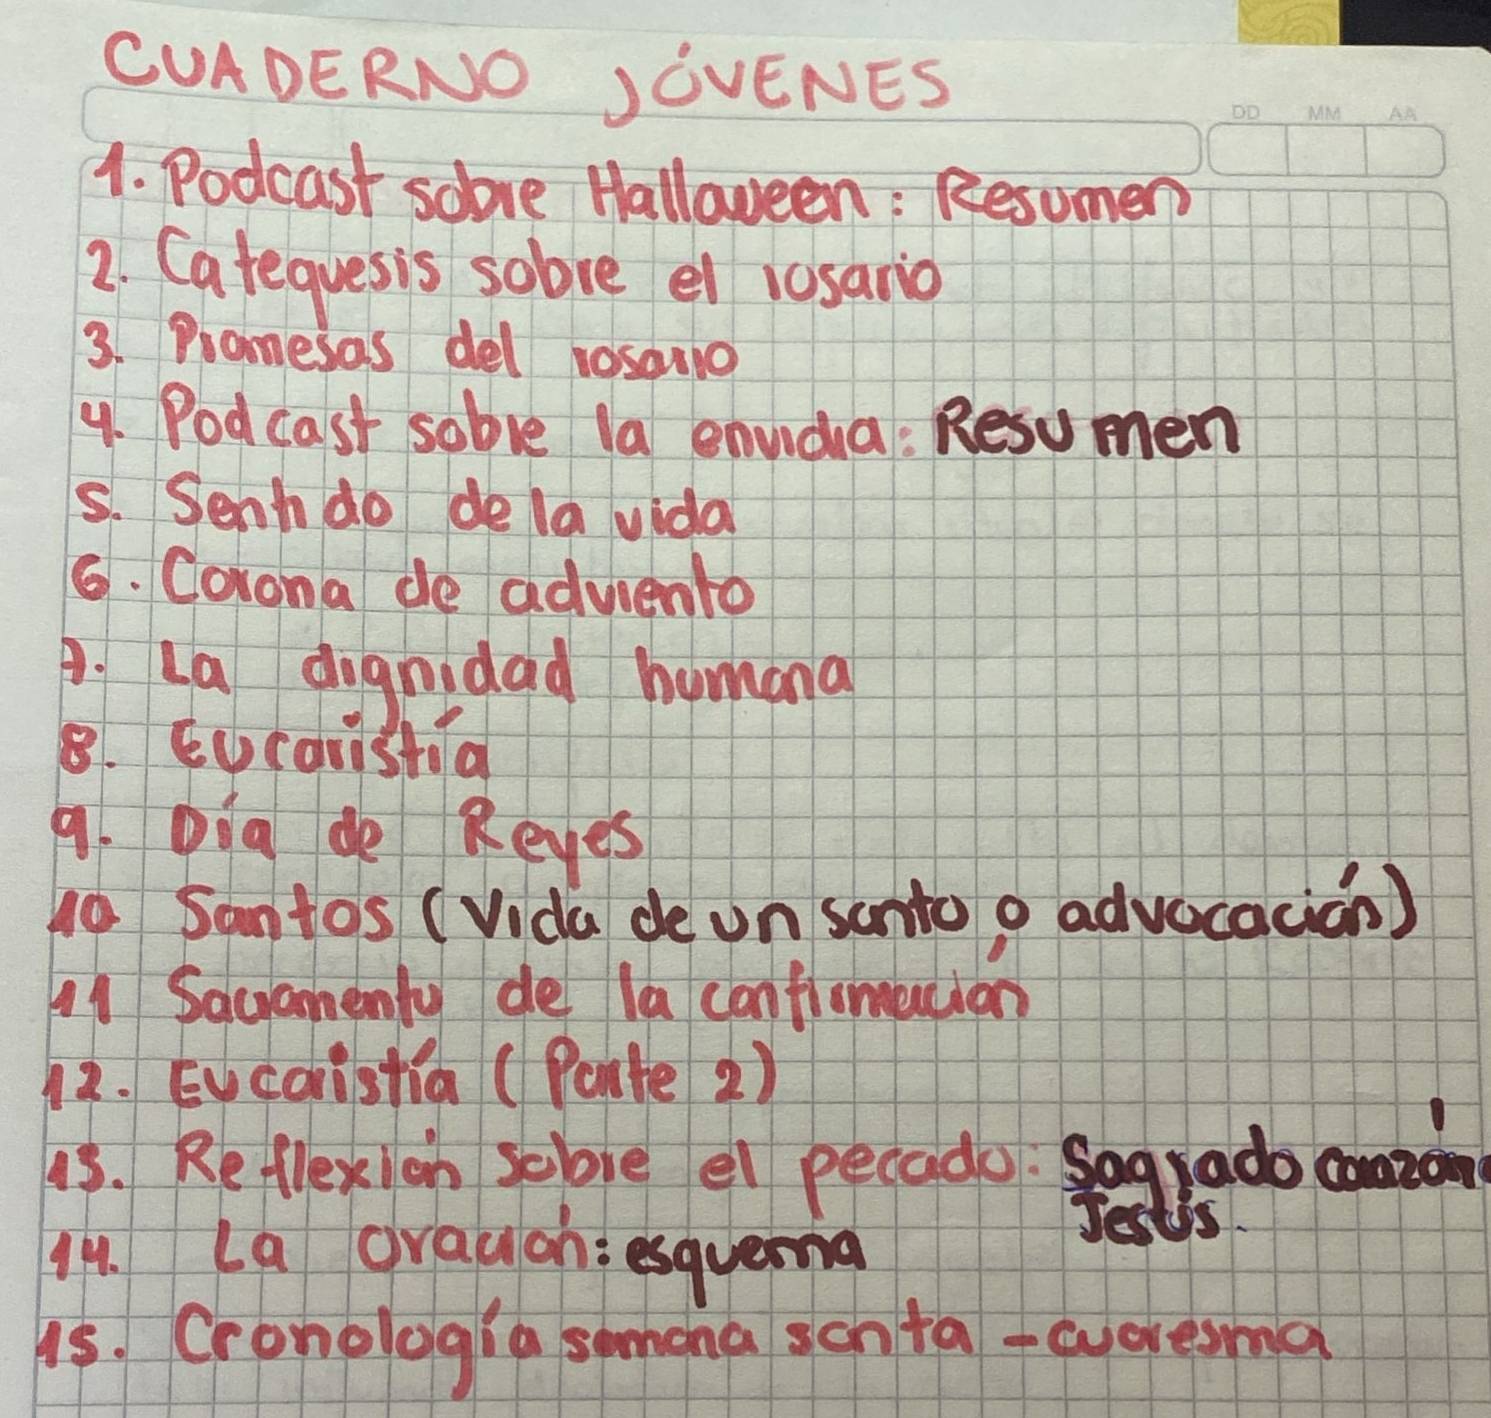 CUADERNO JÓVENES
DD MM AA
1. Podcast sobre Hallaween: Resumen
2. Catequesis sobre el rosario
3. Promesas del rosario
4. Podcast sobre la envidia: Resumen
5. Sentido de la vida
6. Corona de adviento
7. La dignidad humana
8. Eucaristía
9. Día de Reyes
10 Santos (Vida de un santo o advocación)
11 Sacramento de la confirmación
12. Eucaistía (Parte 2)
13. Reflexión sobre el pecado: Sagrado corazón
Jesús.
14. La oración: esquema
15. Cronología semana santa - cuaresma